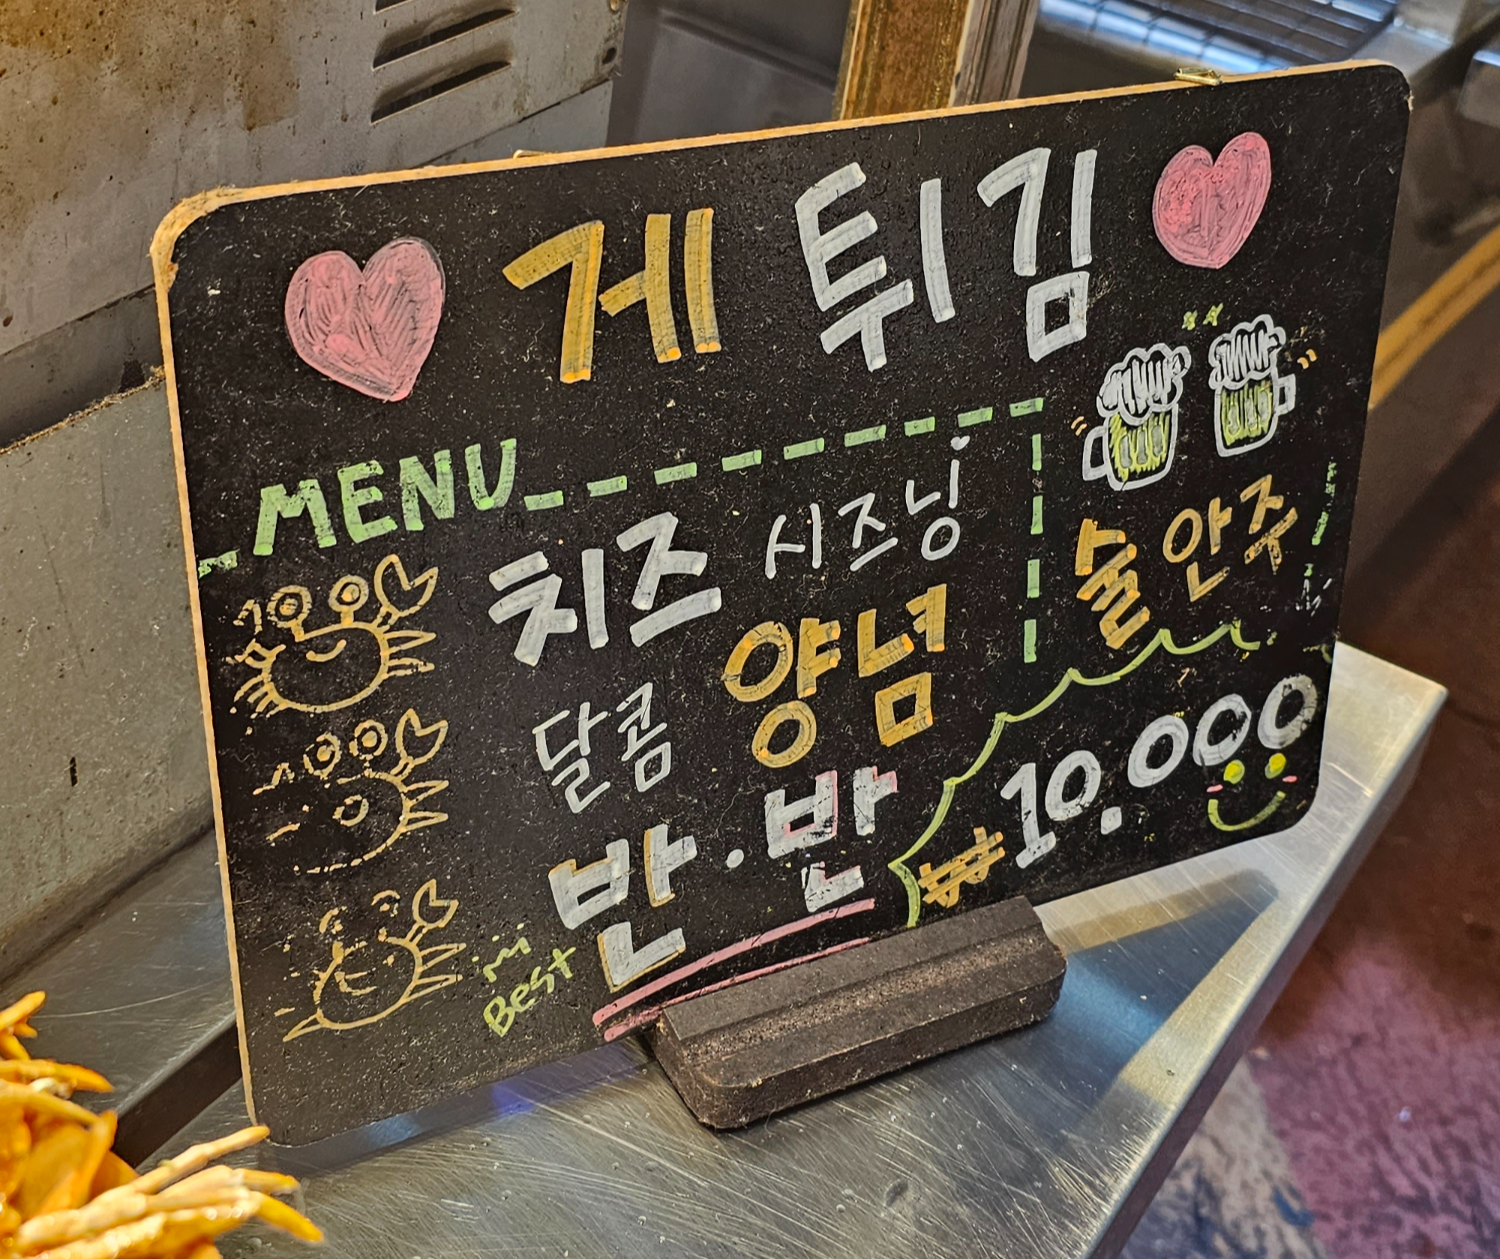 게 튀김
MENU
치즈 시즈닝
달콤 양념
반·반
Best
술 안주
₩10.000